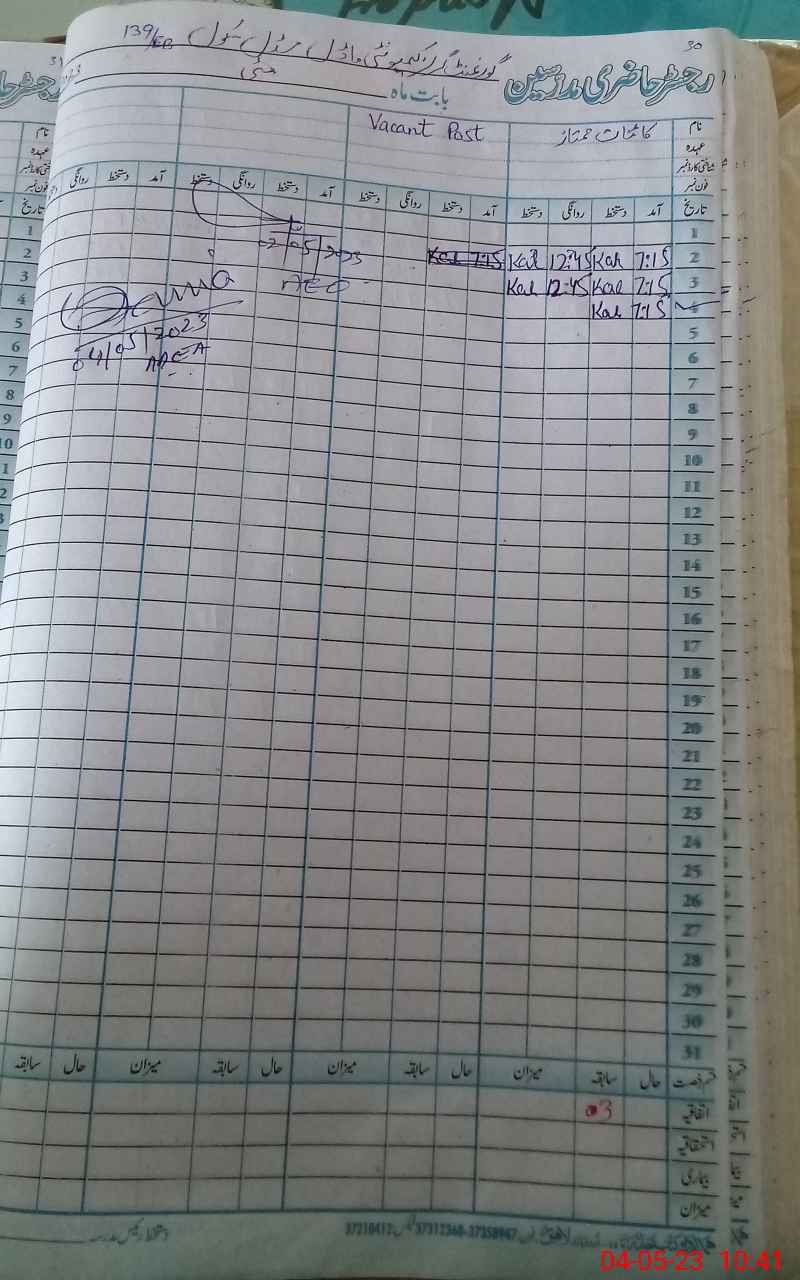 30
139/EB
رجسٹر حاضری مدرسین
گورنمنٹ گرلز کمیونٹی ماڈل مڈل سکول
بابت ماہ مئی
نام کائنات ممتاز Vacant Post
عہدہ
شناختی کارڈ نمبر
فون نمبر
تاریخ آمد دستخط روانگی دستخط آمد دستخط روانگی دستخط آمد دستخط روانگی دستخط آمد دستخط روانگی
1
2 7:15 Kal 12:45 Kal 7:15 Kal
02/05/2023
3 7:15 Kal 12:45 Kal
AEO
4 7:15 Kal
04/05/2023
AAEA
5
6
7
8
9
10
11
12
13
14
15
16
17
18
19
20
21
22
23
24
25
26
27
28
29
30
31
قسم رخصت حال سابقہ میزان حال سابقہ میزان حال سابقہ میزان حال سابقہ
اتفاقیہ 03
استحقاقیہ
بیماری
میزان
دستخط رئیس مدرسہ
37210412 37312360-37358967
04-05-23 10:41